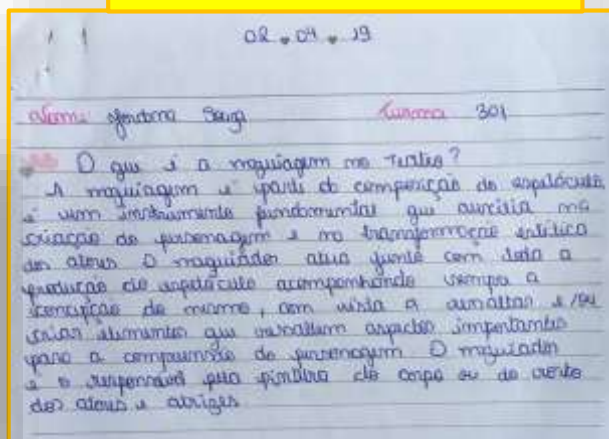 02.04.19
Nome Souza Turma 301
O que é a maquiagem no Teatro?
A maquiagem é parte da composição do espetáculo
é um instrumento fundamental que auxilia na
criação do personagem e na transformação estética
dos atores O maquiador atua junto com toda a
produção do espetáculo acompanhando sempre a
concepção do mesmo, com vista a ressaltar e/ou
criar elementos que ressaltem aspectos importantes
para a compreensão do personagem O maquiador
é o responsável pela pintura do corpo ou do rosto
dos atores e atrizes